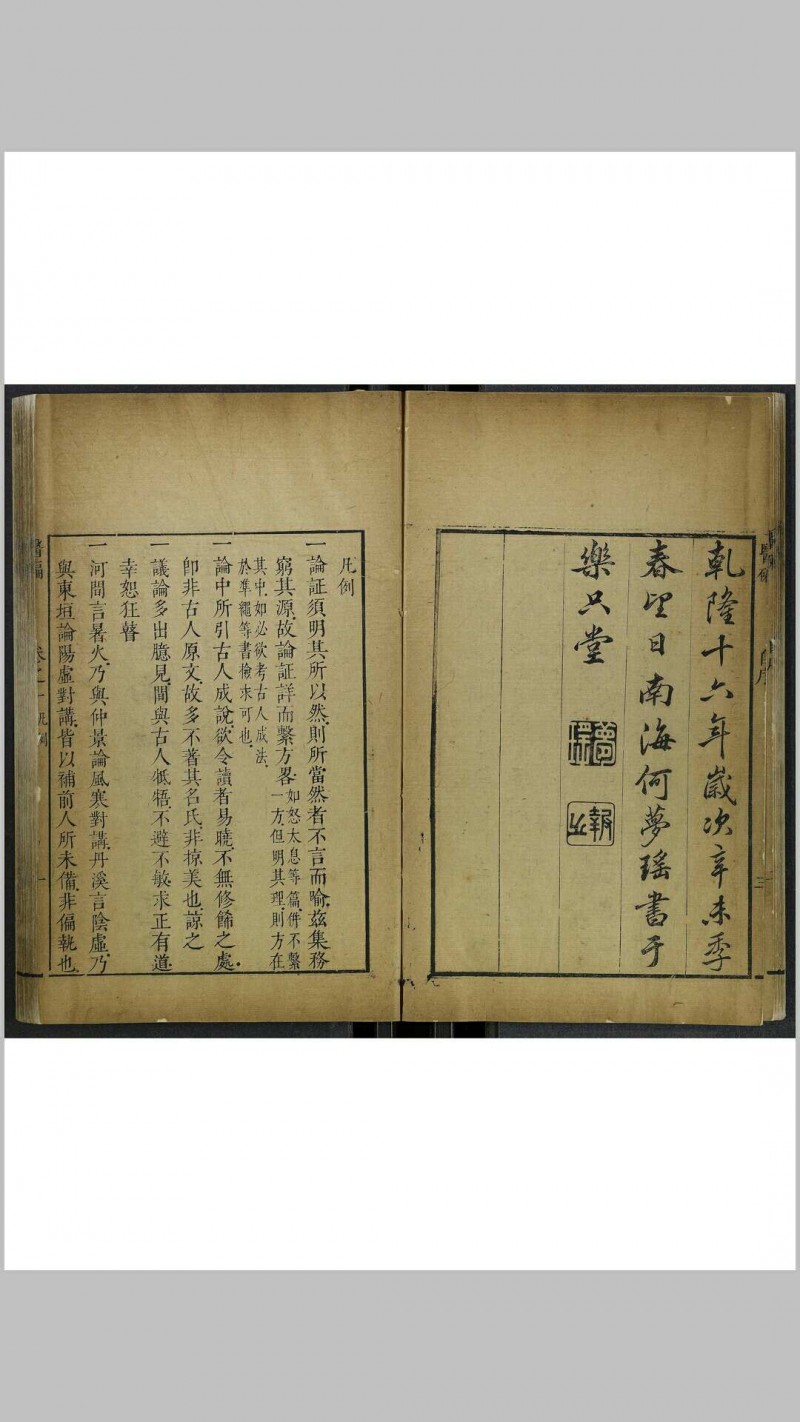 乾隆十六年歲次辛未季
春望日南海何夢瑤書于
樂只堂
報之
凡例
一論証須明其所以然則所當然者不言而喻茲集務
窮其源故論証詳而繫方畧如怒太息等篇併不繫
一方但明其理則方在
其中如必欲考古人成法
於準繩等書檢求可也
一論中所引古人成說欲令讀者易曉不無修飾之處
卽非古人原文故多不著其名氏非掠美也諒之
一議論多出臆見間與古人牴牾不避不敏求正有道
幸恕狂瞽
一河間言暑火乃與仲景論風寒對講丹溪言陰虛乃
與東垣論陽虛對講皆以補前人所未備非偏執也
醫碥
卷之一 凡例
一